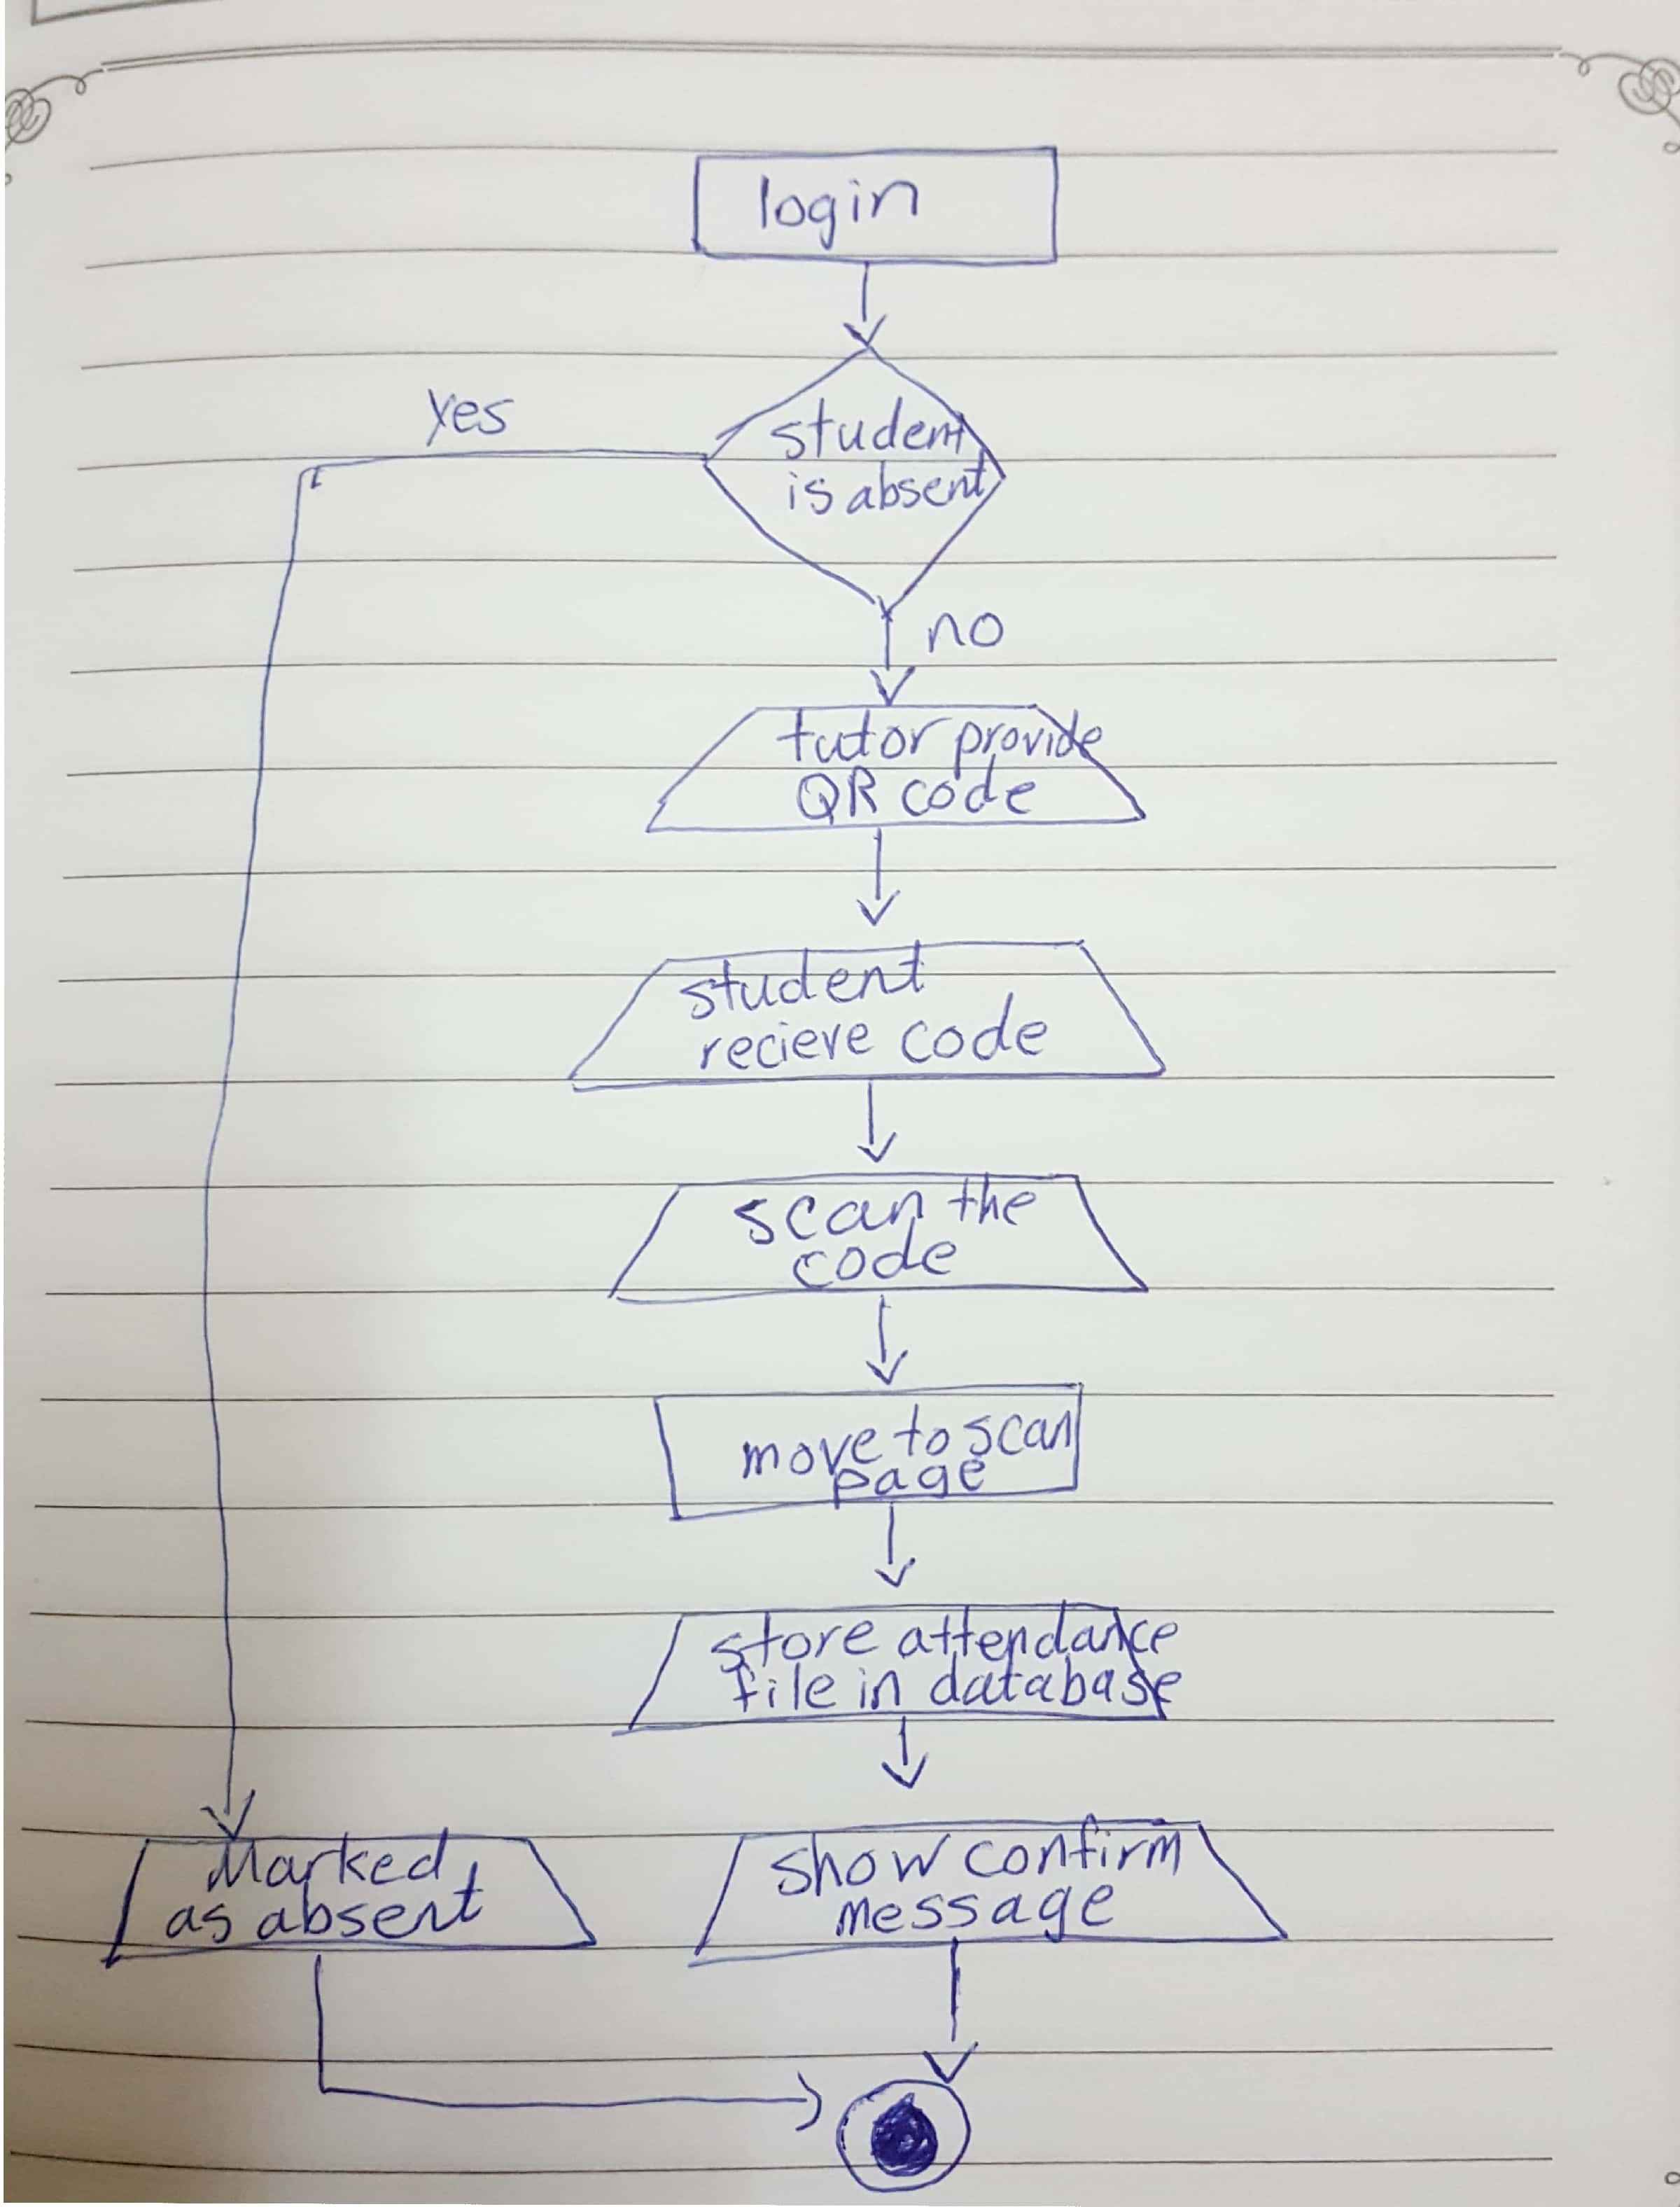 login
Yes
student
is absent
no
tutor provide
QR code
student
recieve code
scan the
code
move to scan
page
store attendance
file in database
Marked
as absent
show confirm
message